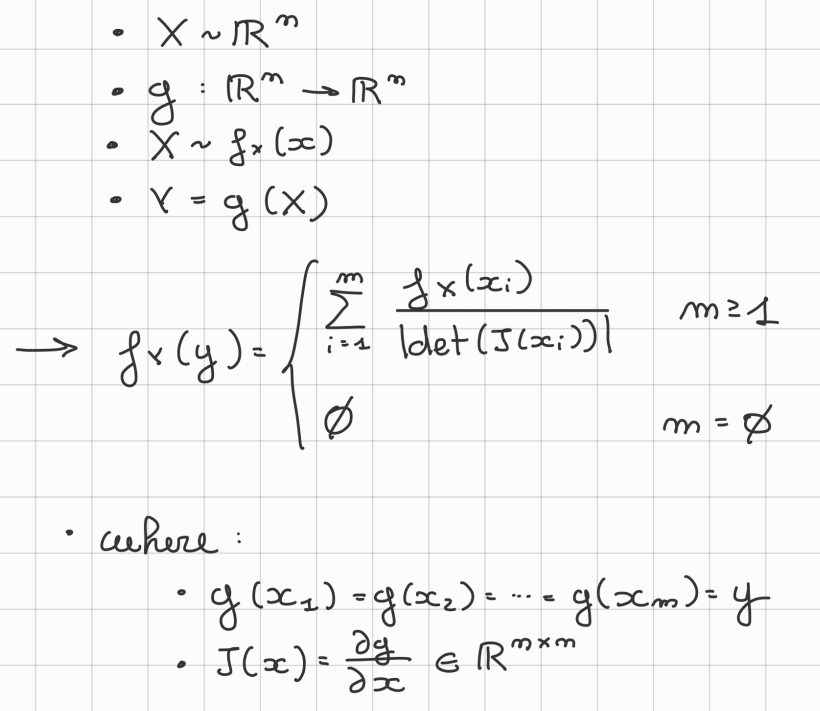 • X ~ ℝⁿ
• g : ℝⁿ → ℝⁿ
• X ~ fₓ(x)
• Y = g(X)
→ f_Y(y) = { ∑_{i=1}^{m} f_X(x_i) / |det(J(x_i))| m ≥ 1
∅ m = ∅
• where :
• g(x₁) = g(x₂) = ... = g(x_m) = y
• J(x) = ∂g/∂x ∈ ℝⁿˣⁿ